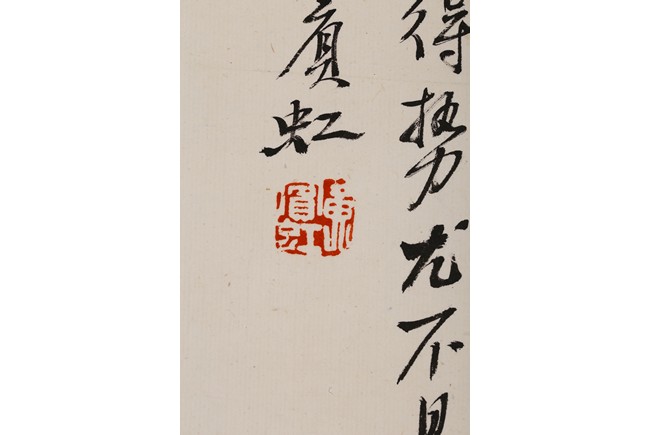 得势尤不
賓虹
黃賓虹